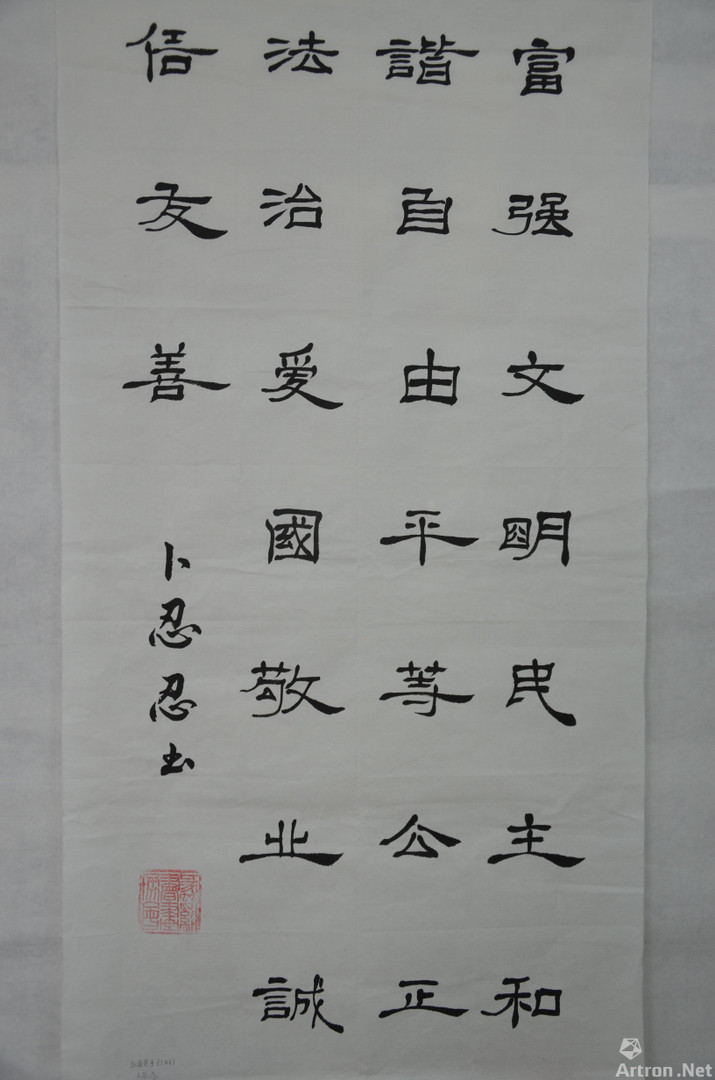 富强文明民主和
諧自由平等公正
法治爱國敬业誠
信友善
卜忍忍书
Artron.Net